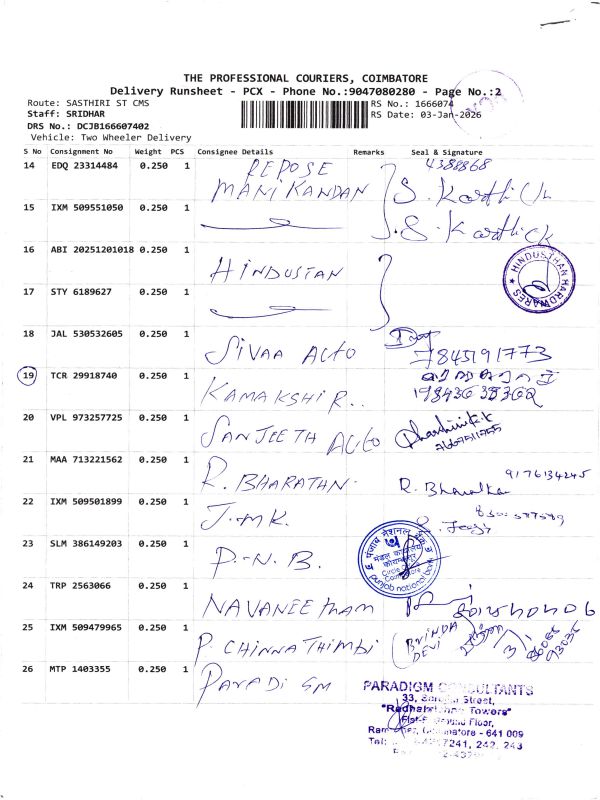 THE PROFESSIONAL COURIERS, COIMBATORE
Delivery Runsheet - PCX - Phone No.:9047080280 - Page No.:2
Route: SASTHIRI ST CMS
RS No.: 1666074
Staff: SRIDHAR
RS Date: 03-Jan-2026
DRS No.: DCJB166607402
Vehicle: Two Wheeler Delivery
S No Consignment No Weight PCS Consignee Details Remarks Seal & Signature
14 EDQ 23314484 0.250 1 REPOSE
MANIKANDAN S. Karthick
15 IXM 509551050 0.250 1 S. Karthick
16 ABI 20251201018 0.250 1 HINDUSTAN
HINDUSTHAN HARDWARES
17 STY 6189627 0.250 1
18 JAL 530532605 0.250 1 SIVAA AUTO 7845191773
19 TCR 29918740 0.250 1 KAMAKSHI R..
20 VPL 973257725 0.250 1 SANJEETH AUTO
21 MAA 713221562 0.250 1 R. BHARATHN. R. Bharathan 9176134245
22 IXM 509501899 0.250 1 J.MK.
23 SLM 386149203 0.250 1 P.N.B.
punjab national bank
24 TRP 2563066 0.250 1 NAVANEETHAM
25 IXM 509479965 0.250 1 P. CHINNATHIMBI (BRINDA DEVI)
26 MTP 1403355 0.250 1 PARADISM
PARADIGM CONSULTANTS
Street,
"Radhakrishna Towers"
Ground Floor,
Coimbatore - 641 009
7241, 242, 243